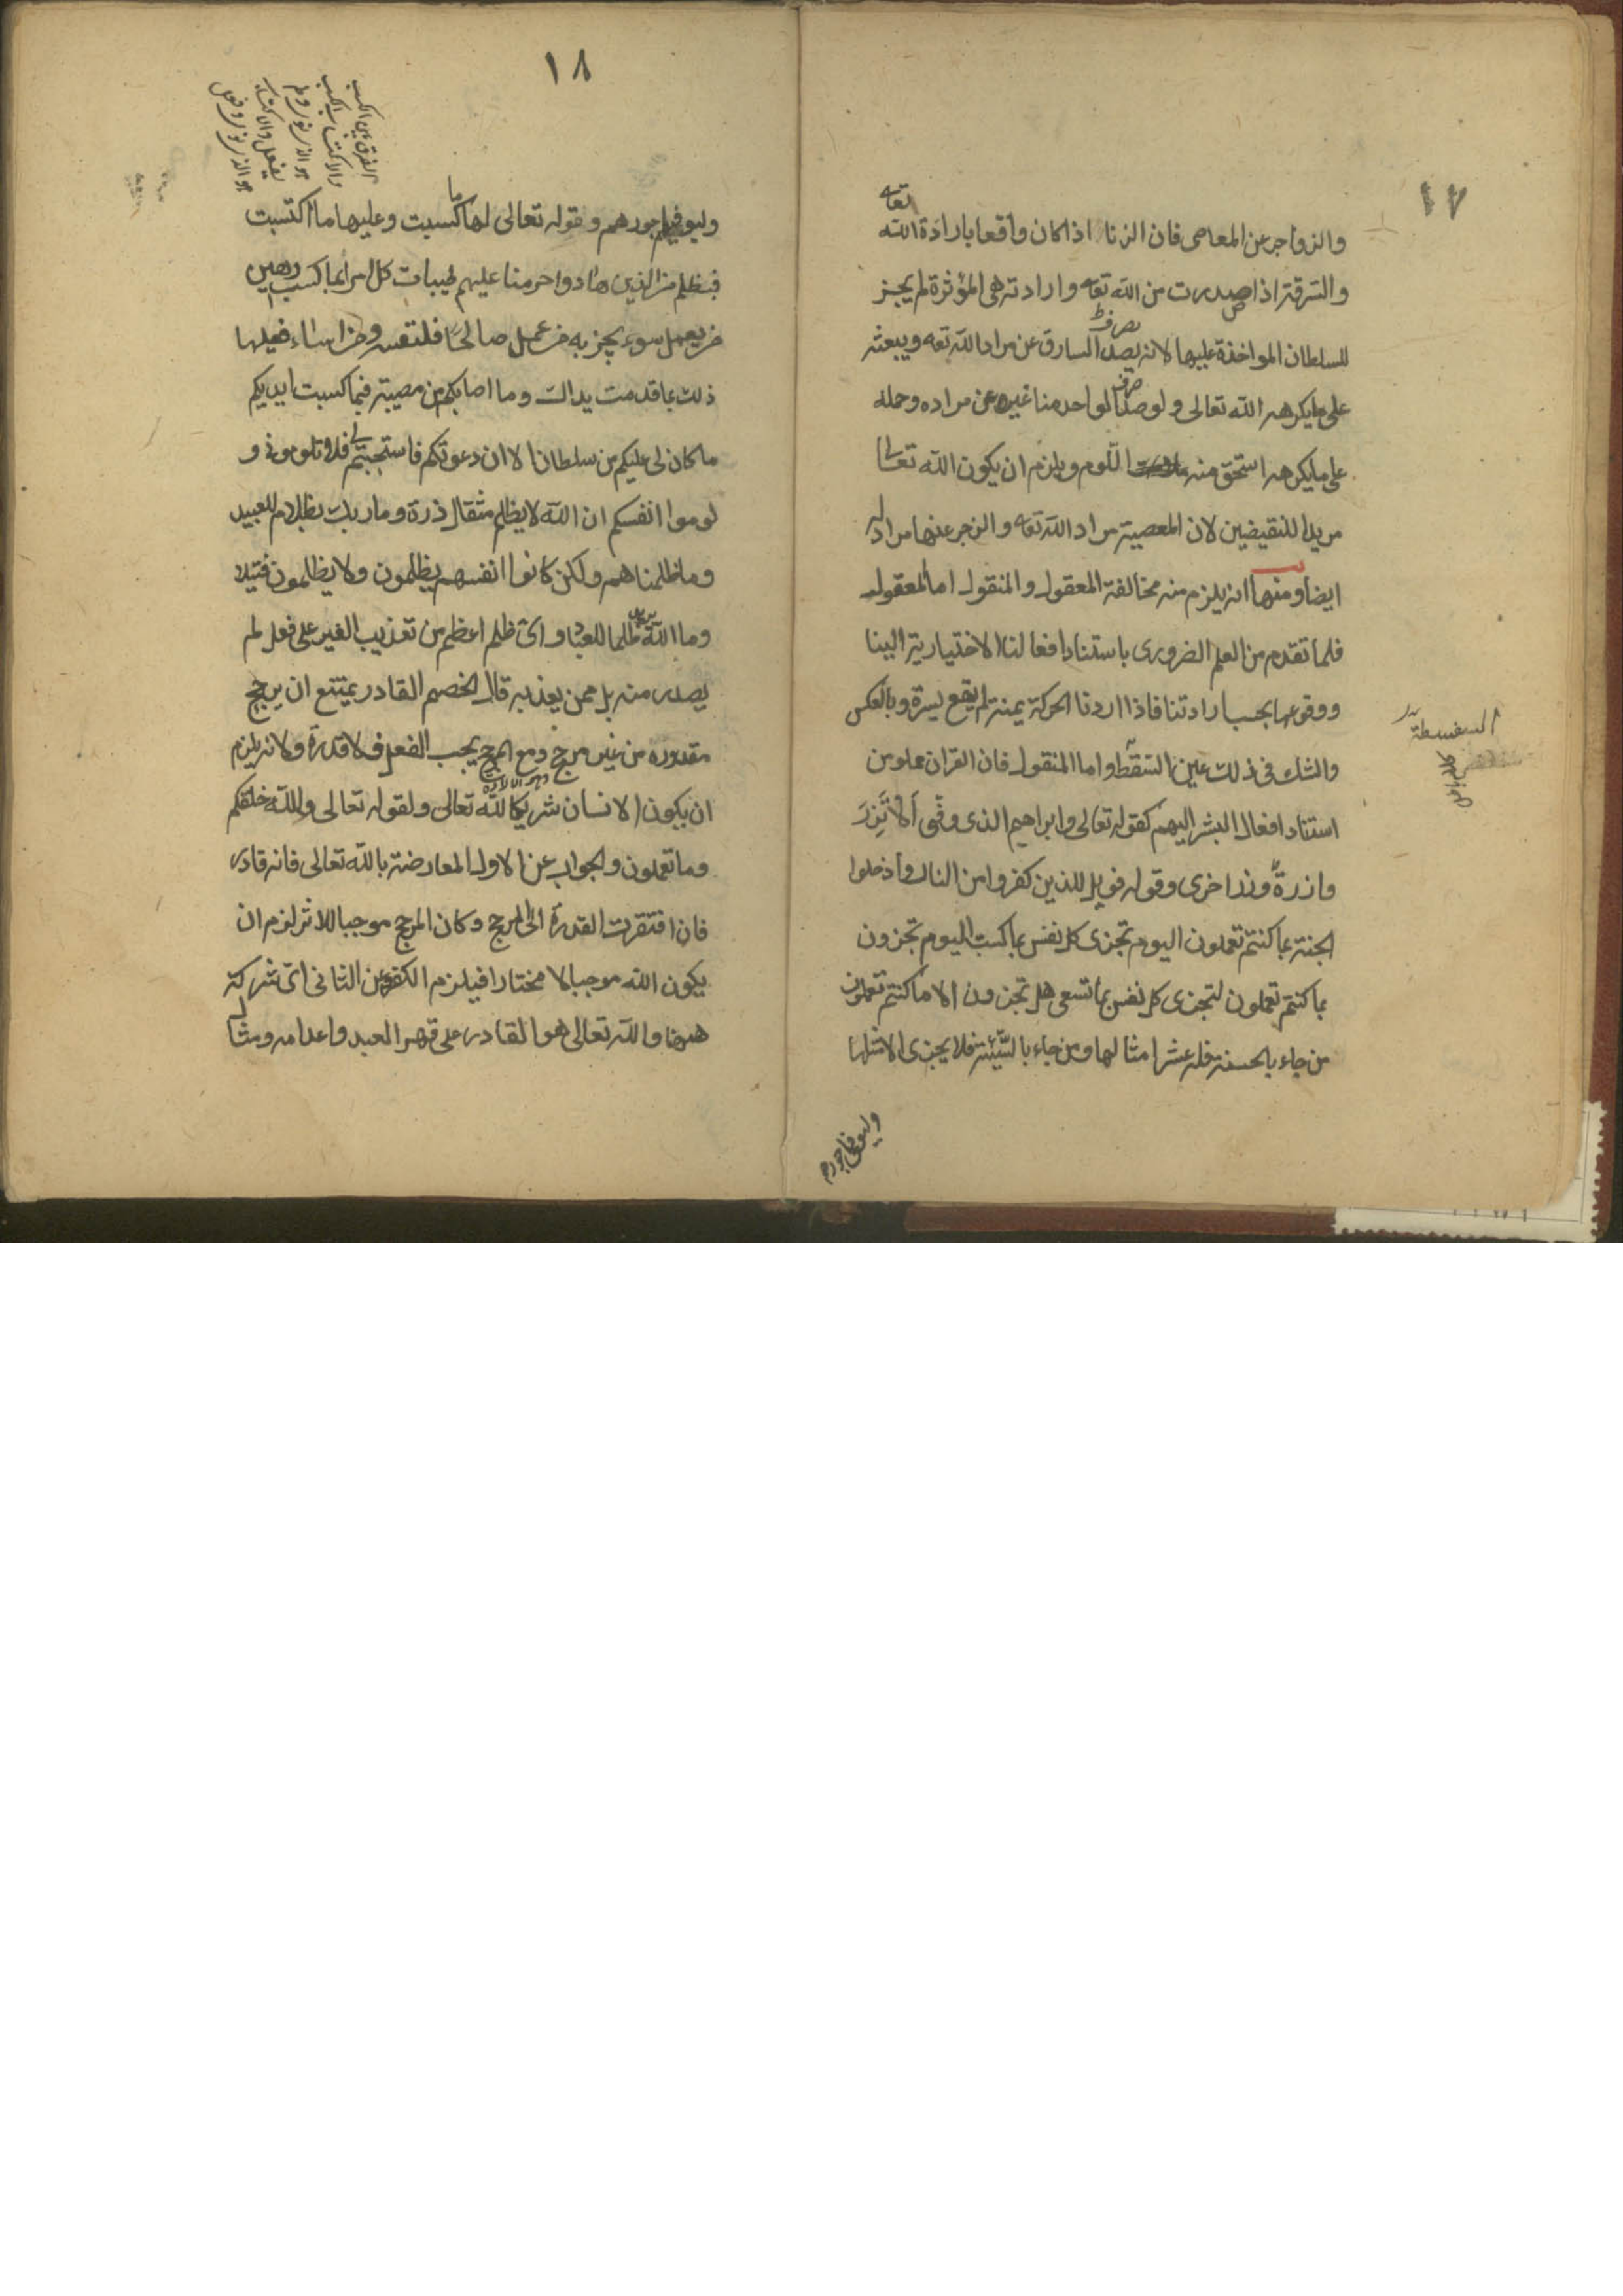 ١٧
والزواجر عن المعاصى فان الزنا اذا كان واقعا بارادة الله تعه
والسرقة اذا صدرت من الله تعه وارادته هى المؤثرة لم يجز
للسلطان المواخذة عليها لانه يصد السارق عن مراد الله تعه ويبعثه
يصرف
على مايكرهه الله تعالى ولو صد الواحد منا غيره عن مراده وحمله
صرف
على مايكرهه استحق منه اللوم ويلزم ان يكون الله تعالى
مريدا للنقيضين لان المعصية مراد الله تعه والزجر عنها مراد له
ايضا ومنها انه يلزم منه مخالفة المعقول والمنقول اما المعقول
فلما تقدم من العلم الضرورى باستناد افعالنا الاختيارية الينا
ووقوعها بحسب ارادتنا فاذا اردنا الحركة يمنة لم يقع يسرة وبالعكس
والشك فى ذلك عين السقطة واما المنقول فان القران مملو من
السفسطة
استناد افعال البشر اليهم كقوله تعالى وابراهيم الذى وفى ألا تزر
وازرة وزر اخرى وقوله فويل للذين كفروا من النار وادخلوا
الجنة بما كنتم تعملون اليوم تجزى كل نفس بما كسبت اليوم تجزون
بما كنتم تعملون لتجزى كل نفس بما تسعى هل تجزون الا ما كنتم تعملون
من جاء بالحسنة فله عشر امثالها ومن جاء بالسيئة فلا يجزى الا مثلها
وليوفيهم اجورهم
١٨
الفرق بين الكسب
والاكتساب الكسب
هو الذى
وليوفيهم اجورهم وقوله تعالى لها ما كسبت وعليها ما اكتسبت
فبظلم من الذين هادوا حرمنا عليهم طيبات كل امرئ بما كسب رهين
من يعمل سوء يجز به من عمل صالحا فلنفسه ومن اساء فعليها
ذلك بما قدمت يداك وما اصابكم من مصيبة فبما كسبت ايديكم
ما كان لى عليكم من سلطان الا ان دعوتكم فاستجبتم لى فلا تلومونى و
لوموا انفسكم ان الله لا يظلم مثقال ذرة وما ربك بظلام للعبيد
وما ظلمناهم ولكن كانوا انفسهم يظلمون ولا يظلمون فتيلا
وما الله يريد ظلما للعباد واى ظلم اعظم من تعذيب الغير على فعل لم
يصدر منه بل ممن يعذبه قال الخصم القادر يمتنع ان يرجح
مقدوره من غير مرجح ومع المرجح يجب الفعل فلا قدرة ولانه يلزم
ان يكون الانسان شريكا لله تعالى ولقوله تعالى والله خلقكم
وما تعملون والجواب عن الاول المعارضة بالله تعالى فانه قادر
فان افتقرت القدرة الى المرجح وكان المرجح موجبا للاثر لزم ان
يكون الله موجبا لا مختارا فيلزم الكفر وعن الثانى اى شركة
ههنا والله تعالى هو القادر على قهر العبد واعدامه ومثال